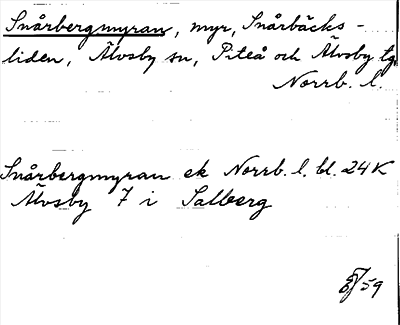 Snårbergmyran, myr, Snårbäcks-
liden, Älvsby sn, Piteå och Älvsby tg
Norrb. l.
Snårbergmyran ek Norrb. l. bl. 24K
Älvsby 7 i Salberg
/59